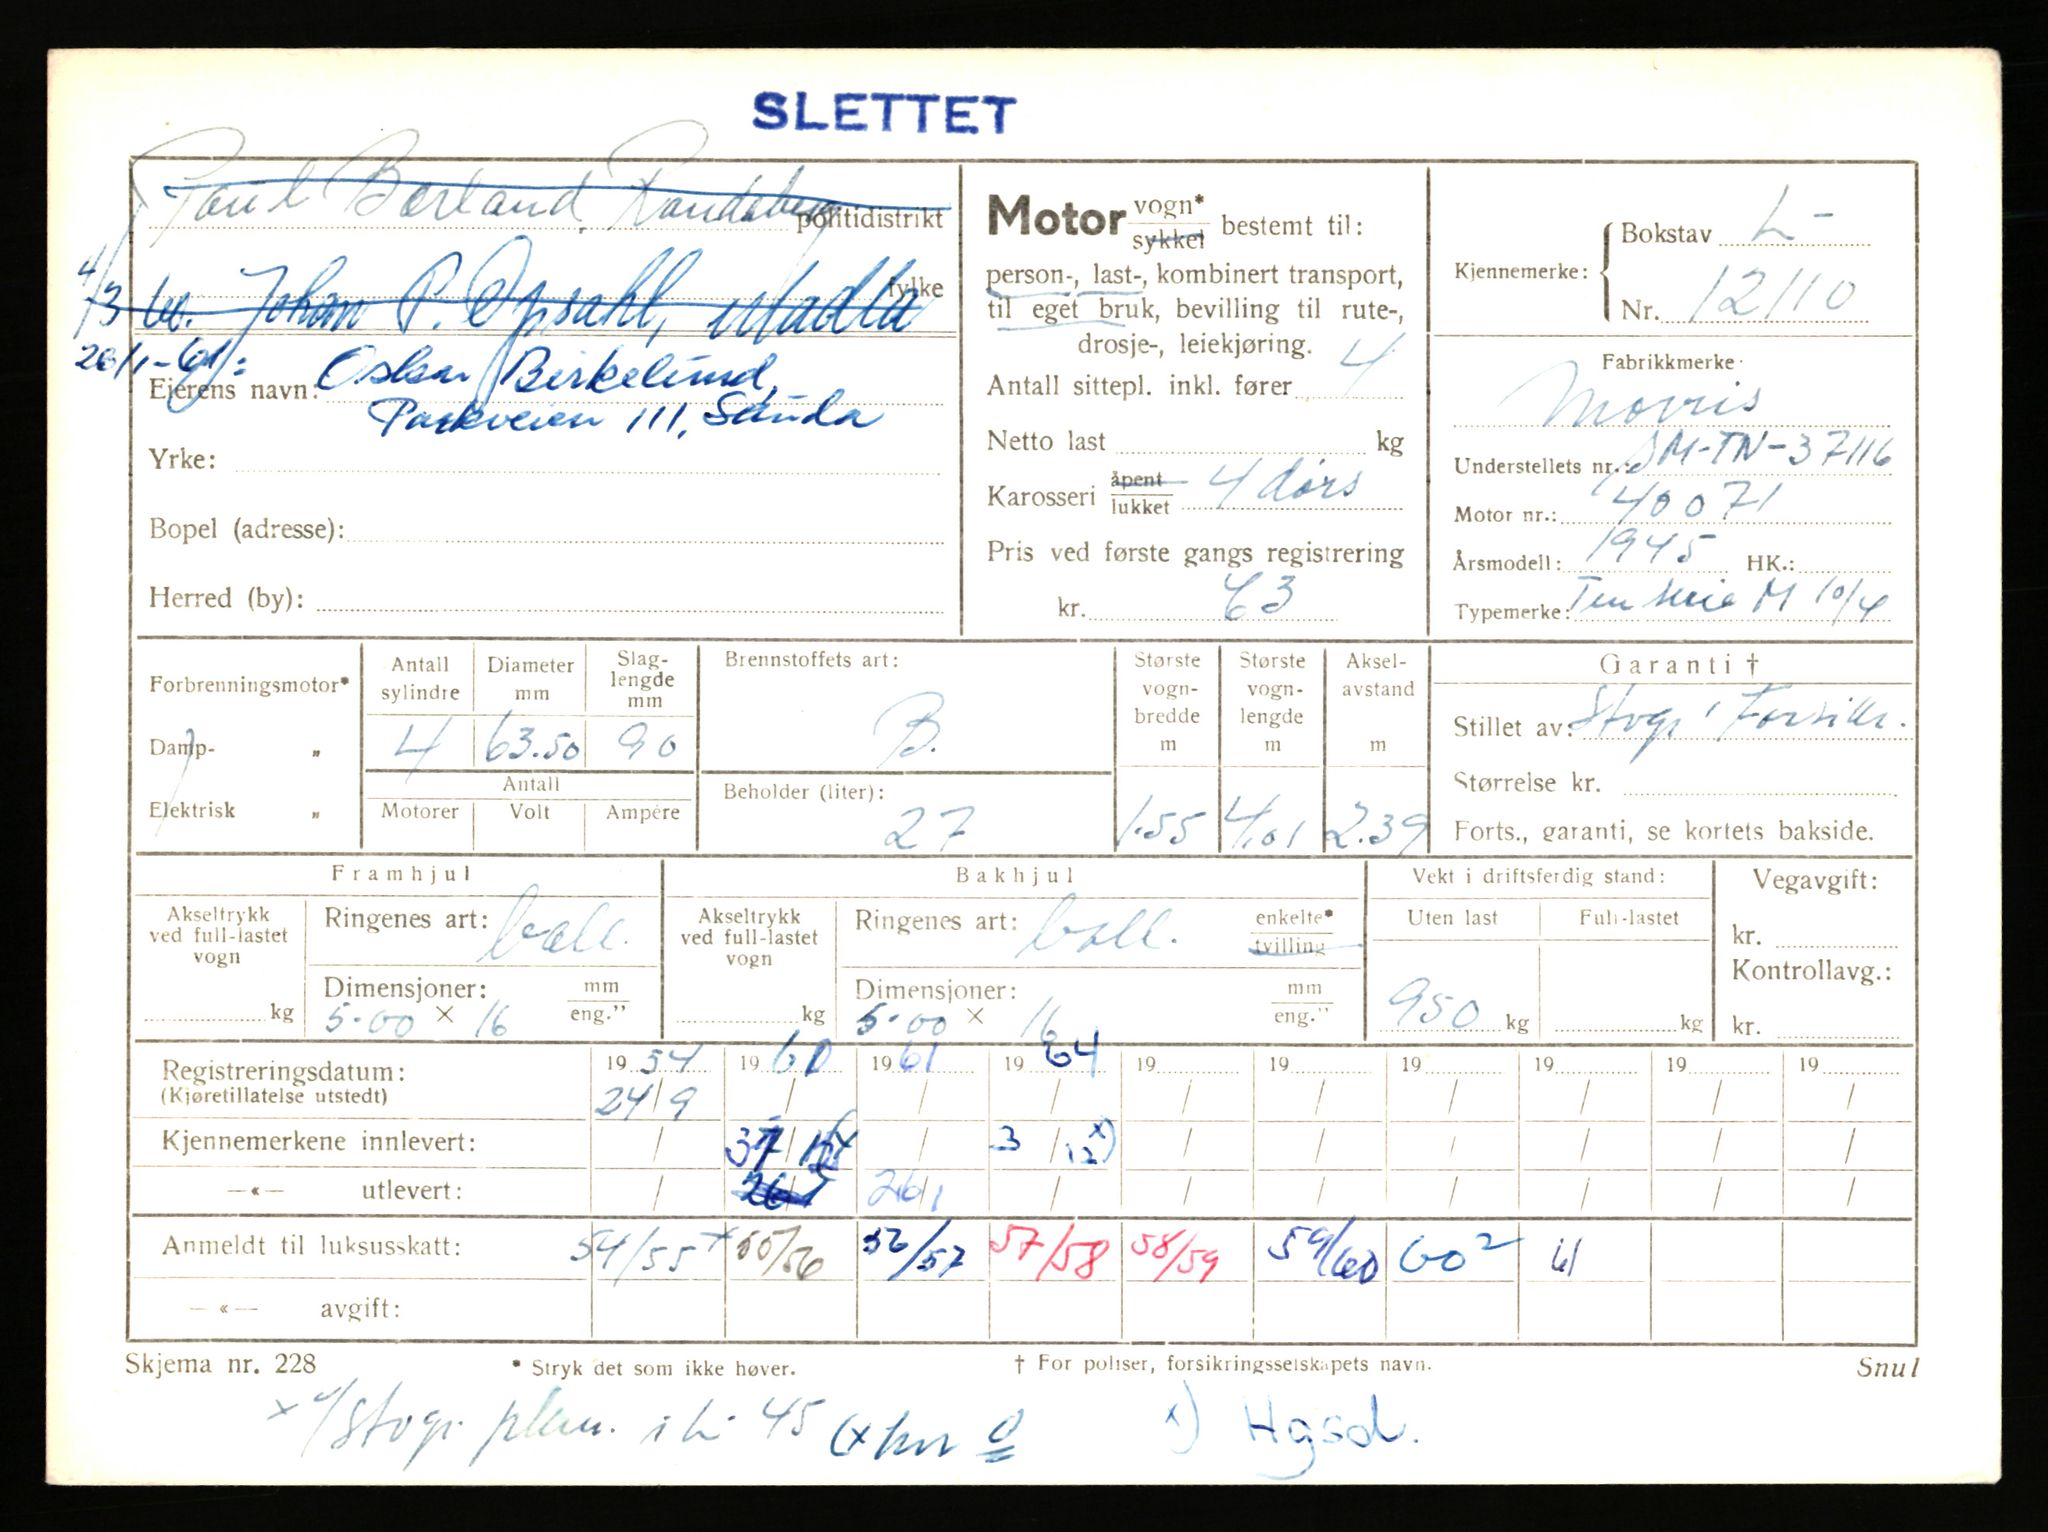 SLETTET
Paul Bærland, Randaberg
politidistrikt
4/3 60. Johan P. Opsahl, Madla
fylke
26/1-61: Oskar Birkelund,
Eierens navn:
Parkveien 111, Sauda
Yrke:
Bopel (adresse):
Herred (by):
Motor vogn* sykkel bestemt til:
person-, last-, kombinert transport,
til eget bruk, bevilling til rute-,
drosje-, leiekjøring.
Antall sittepl. inkl. fører 4
Netto last kg
Karosseri åpent lukket 4 dørs
Pris ved første gangs registrering
kr. 63
Kjennemerke: Bokstav L-
Nr. 12110
Fabrikkmerke:
Morris
Understellets nr.: SM-TN-37116
Motor nr.: 40071
Årsmodell: 1945 HK.:
Typemerke: Ten serie M 10/4
Forbrenningsmotor*
Damp- „
Elektrisk „
Antall sylindre 4
Diameter mm 63.50
Slag-lengde mm 90
Antall
Motorer Volt Ampére
Brennstoffets art:
B.
Beholder (liter):
27
Største vogn-bredde m 1.55
Største vogn-lengde m 4,01
Aksel-avstand m 2.39
Garanti †
Stillet av: Stvgr. Forsikr.
Størrelse kr.
Forts., garanti, se kortets bakside.
Framhjul
Akseltrykk ved full-lastet vogn
kg
Ringenes art: ball.
Dimensjoner: mm eng."
5.00 × 16
Bakhjul
Akseltrykk ved full-lastet vogn
kg
Ringenes art: ball. enkelte* tvilling
Dimensjoner: mm eng."
5.00 × 16
Vekt i driftsferdig stand:
Uten last Full-lastet
950 kg kg
Vegavgift:
kr.
Kontrollavg.:
kr.
Registreringsdatum: 1954 1960 1961 1964 19 19 19 19 19 19
(Kjøretillatelse utstedt) 24/9 / / / / / / / / /
Kjennemerkene innlevert: / / 3/12 x) / / / / / /
—«— utlevert: / 26/1 26/1 / / / / / / /
Anmeldt til luksusskatt: 54/55 x 55/56 56/57 57/58 58/59 59/60 60² 61
—«— avgift:
Skjema nr. 228
* Stryk det som ikke høver.
† For poliser, forsikringsselskapets navn.
Snul
x) Hgsd.